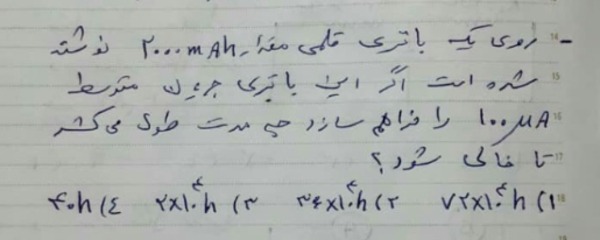 - روی یک باتری قلمی مقدار ۲۰۰۰mAh نوشته
شده است اگر این باتری جریان متوسط
۱۰۰μA را فراهم سازد چه مدت طول می‌کشد
تا خالی شود؟
۱) ۷۲×۱۰^۴ h ۲) ۳۶×۱۰^۴ h ۳) ۲×۱۰^۴ h ۴) ۴۰h